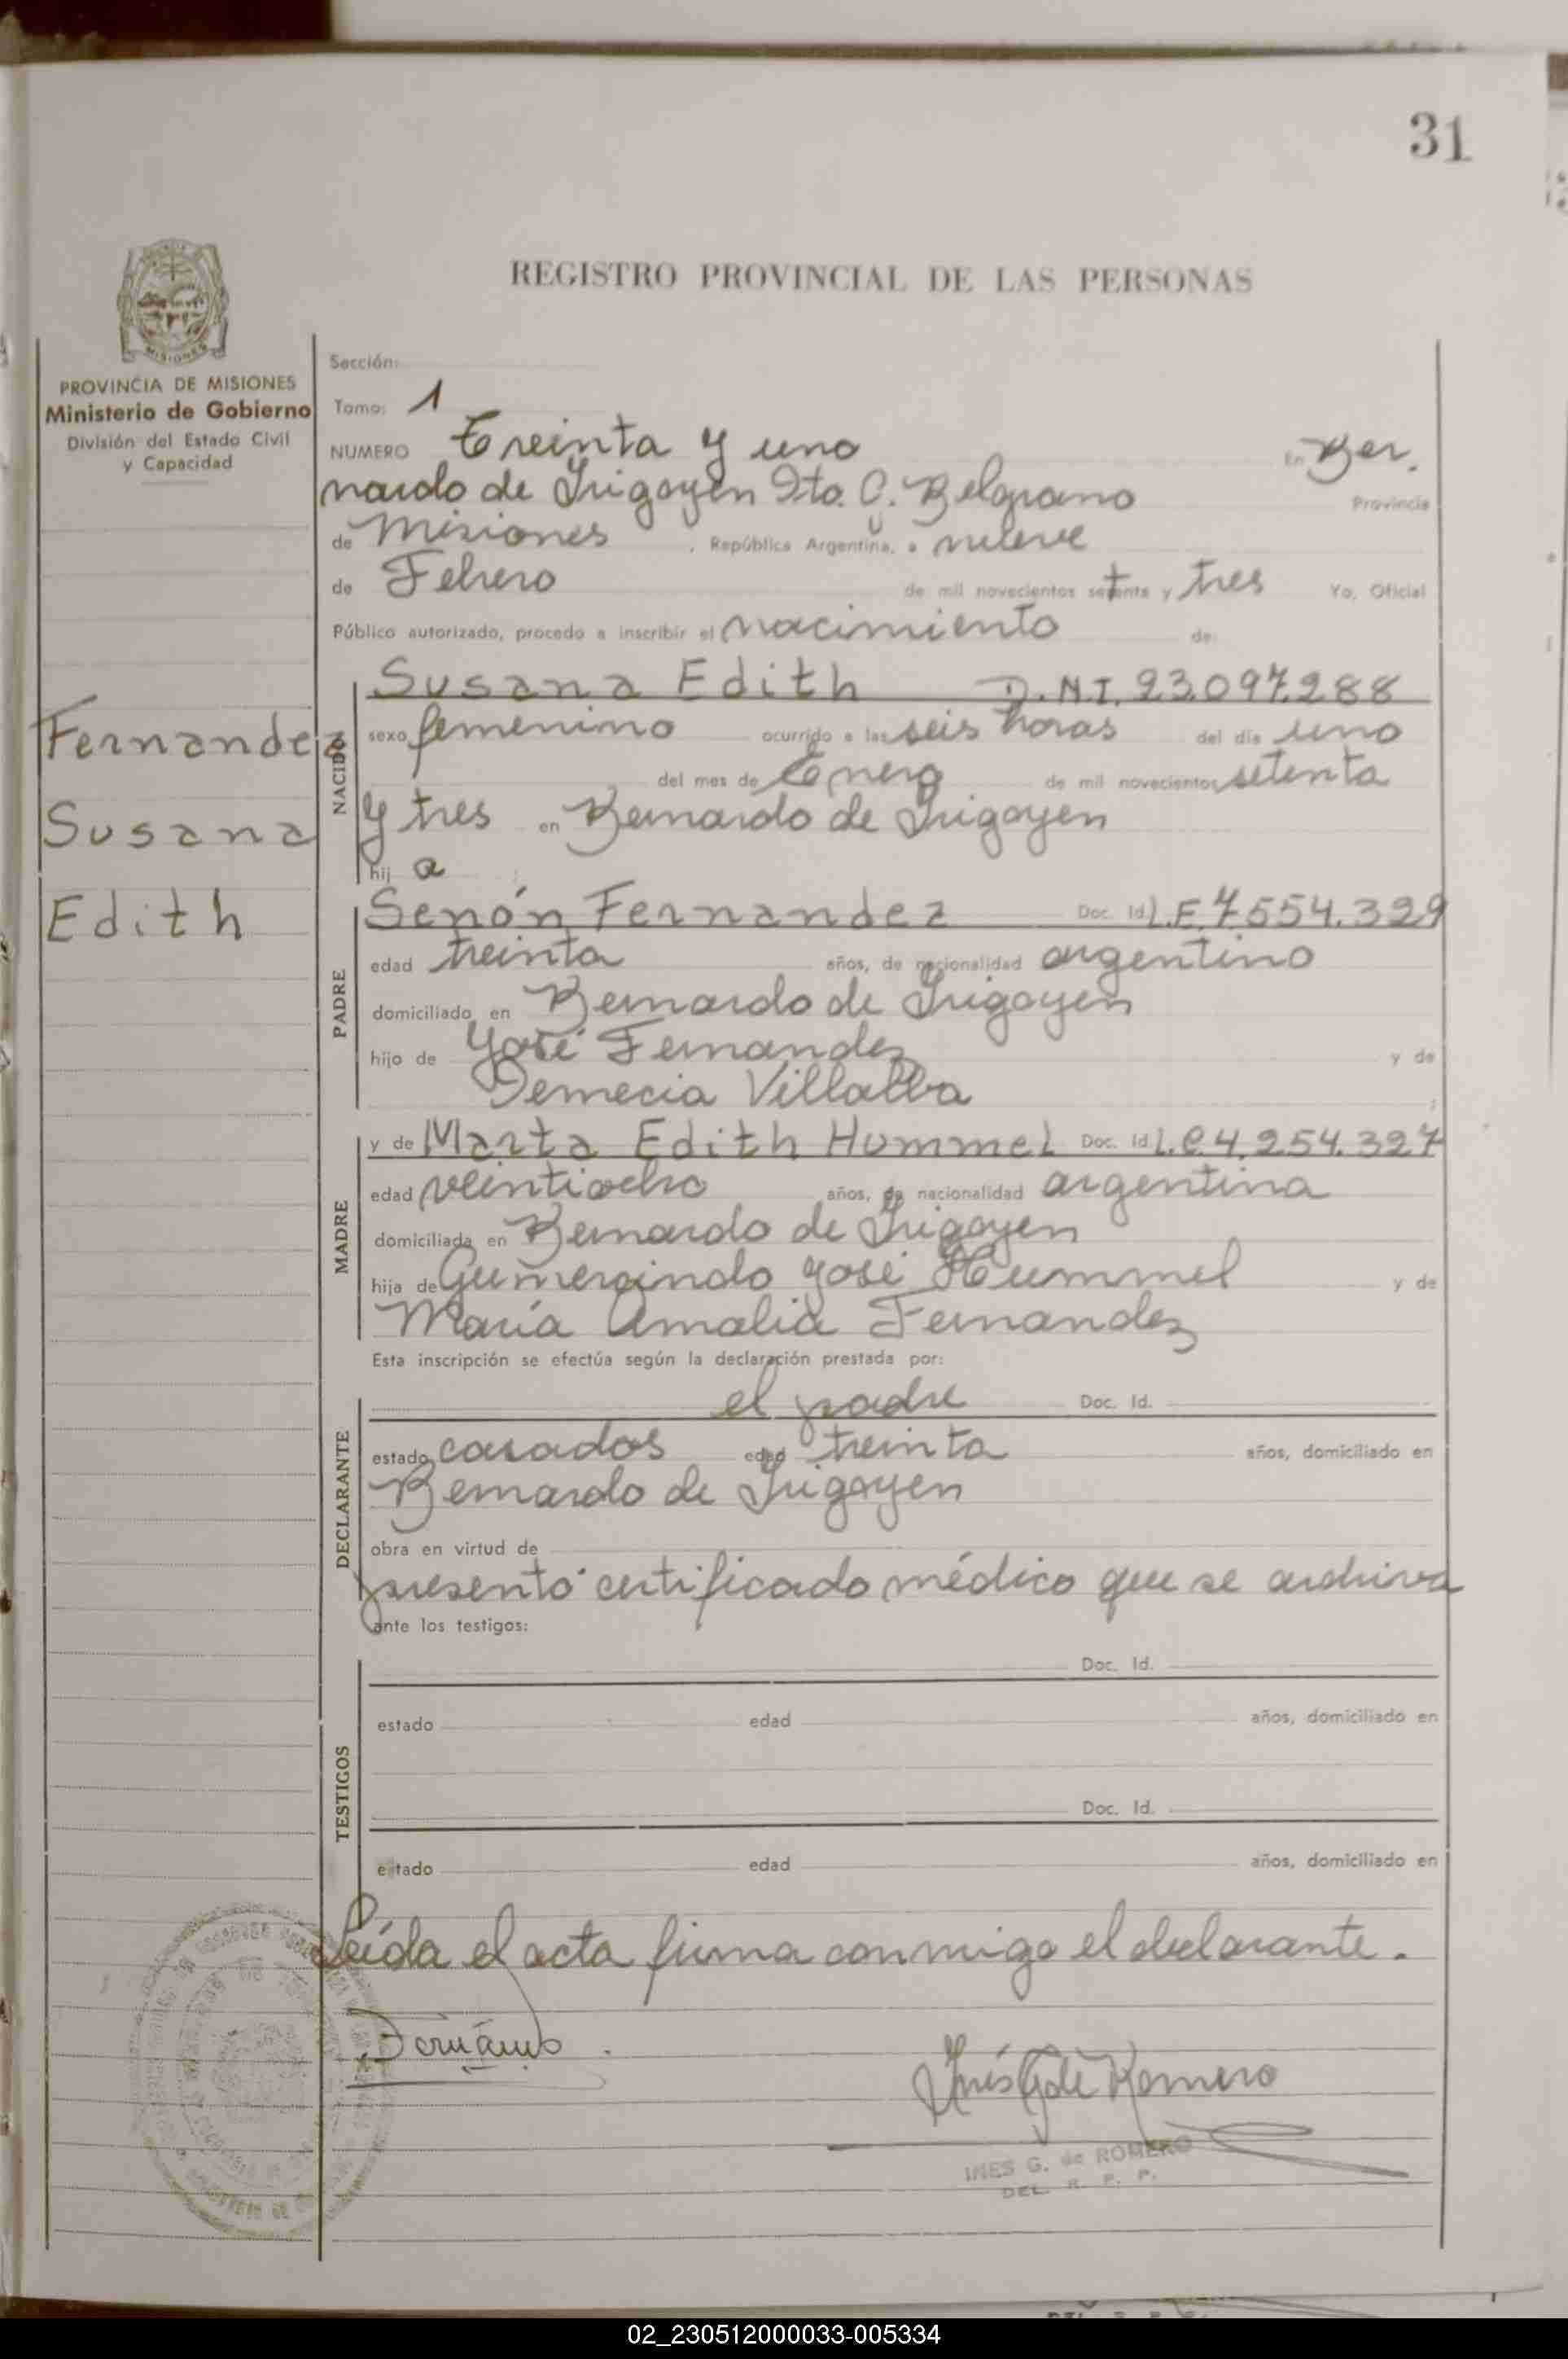 31
REGISTRO PROVINCIAL DE LAS PERSONAS
MISIONES
PROVINCIA DE MISIONES
Ministerio de Gobierno
División del Estado Civil
y Capacidad
Fernandez
Susana
Edith
Sección:
Tomo: 1
NUMERO Treinta y uno En Ber.
nardo de Irigoyen Dto. G. Belgrano Provincia
de Misiones , República Argentina, a nueve
de Febrero de mil novecientos setenta y tres Yo, Oficial
Público autorizado, procedo a inscribir el nacimiento de:
NACIDO
Susana Edith D.N.I. 23.097.288
sexo femenino ocurrido a las seis horas del día uno
del mes de Enero de mil novecientos setenta
y tres en Bernardo de Irigoyen
hij a
PADRE
Senón Fernandez Doc. Id. L.E. 7.554.329
edad treinta años, de nacionalidad argentino
domiciliado en Bernardo de Irigoyen
hijo de José Fernandez y de
Demecia Villalba
MADRE
y de Marta Edith Hummel Doc. Id. L.C. 4.254.327
edad veintiocho años, de nacionalidad argentina
domiciliada en Bernardo de Irigoyen
hija de Gumercindo José Hummel y de
María Amalia Fernandez
Esta inscripción se efectúa según la declaración prestada por:
DECLARANTE
el padre Doc. Id.
estado casados edad treinta años, domiciliado en
Bernardo de Irigoyen
obra en virtud de
presentó certificado médico que se archiva
ante los testigos:
TESTIGOS
Doc. Id.
estado edad años, domiciliado en
Doc. Id.
estado edad años, domiciliado en
Leída el acta firma conmigo el declarante.
Inés G de Romero
INES G. de ROMERO
DEL. R. P. P.
02_230512000033-005334